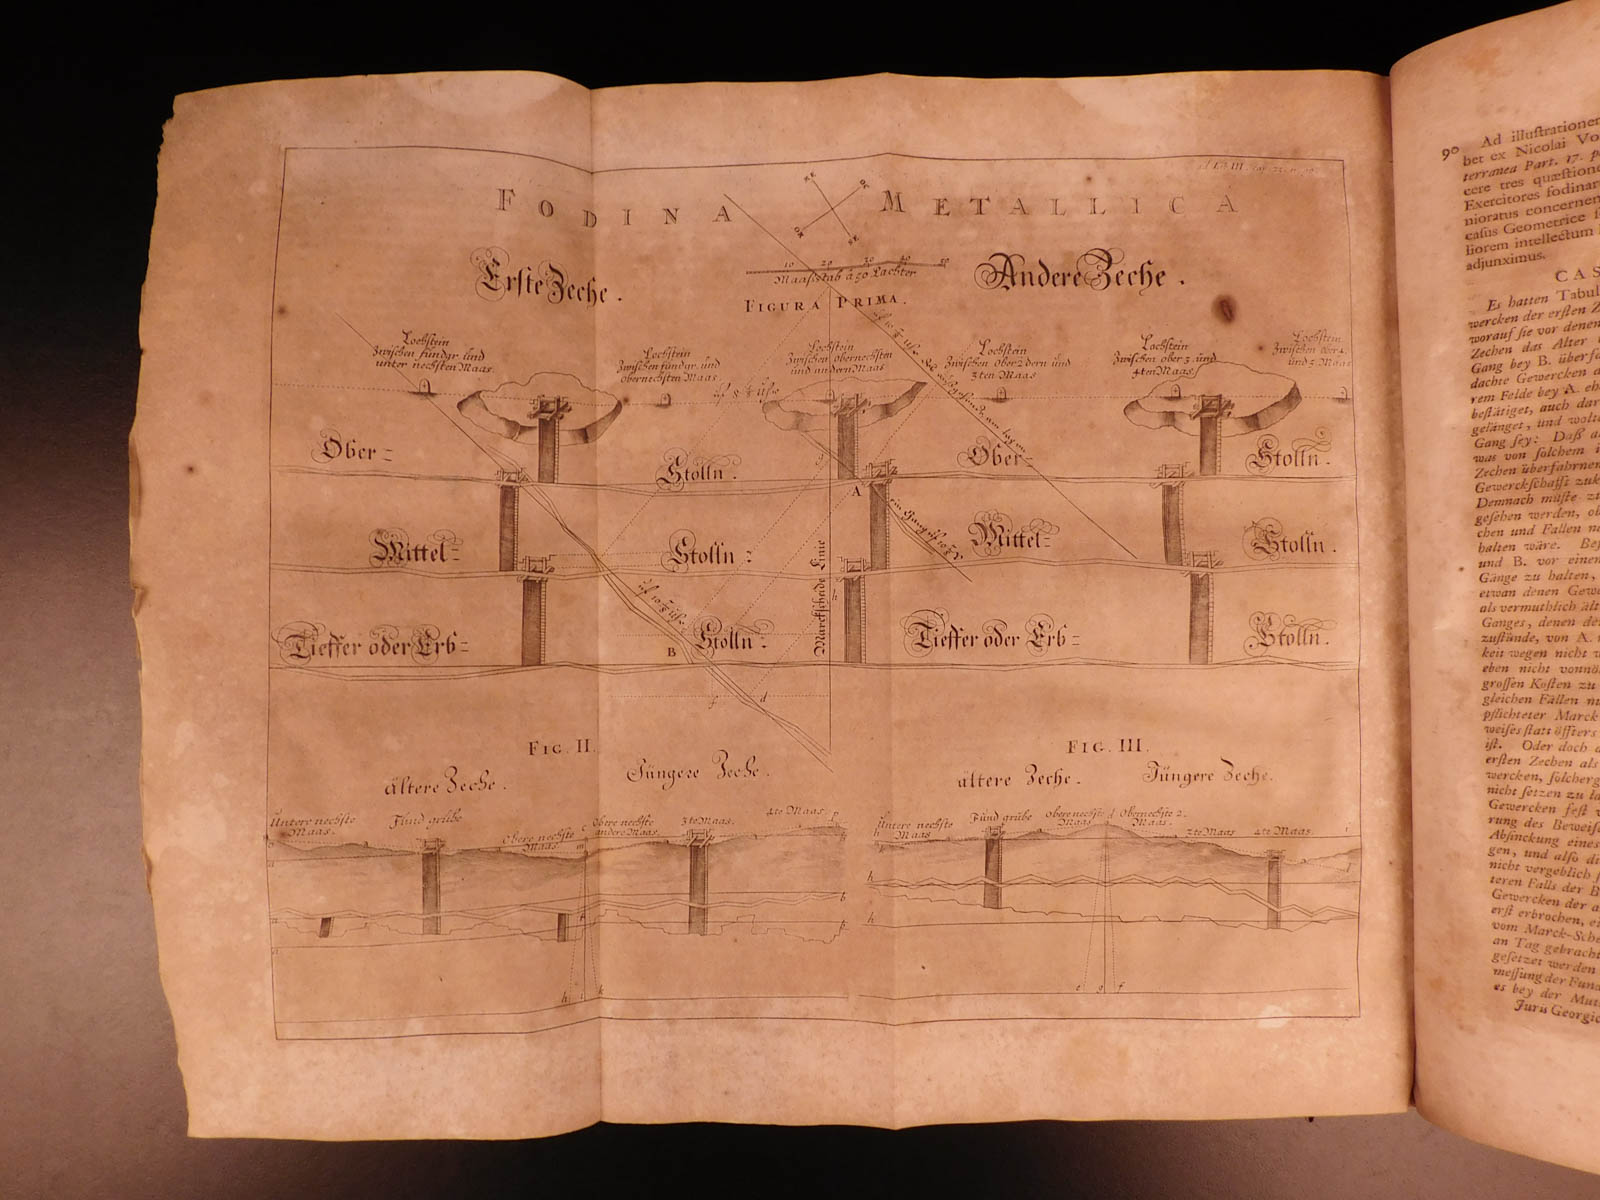 FODINA METALLICA
Erste Zeche.
Andere Zeche.
10 20 30 40 50
Maasstab á 50 Lachter
FIGURA PRIMA.
Lochstein
Zwischen fündgr. und
unter nechsten Maas.
Lochstein
Zwischen fündgr. und
obernechsten Maas.
Lochstein
Zwischen obernechsten
und andern Maas
Lochstein
Zwischen Ober 2 dern und
3ten Maas.
Lochstein
Zwischen ober 3. und
4ten Maas.
Lochstein
Zwischen ober 4.
und 5 Maas
Ober-
Stolln.
Ober-
Stolln.
A
Mittel-
Stolln:
Mittel-
Stolln.
Marckscheide Linie
h
Tieffer oder Erb-
B
Stolln:
Tieffer oder Erb-
Stolln.
f d
FIG. II.
FIG. III.
ältere Zeche.
Jüngere Zeche.
ältere Zeche.
Jüngere Zeche.
Untere nechste
Maas.
Fund grübe
Obere nechste
Maas.
Obere nechste
andere Maas.
3te Maas.
4te Maas.
Untere nechste
Maas.
Fund grübe
Obere nechste
Maas.
Obernechste 2.
Maas.
3te Maas
4te Maas.
h i k
e g f
90 Ad illustrationem
bet ex Nicolai Vo
terranea Part. 17. p
cere tres quæstione
Exercitores fodinar
nioratus concernen
casus Geometrice
liorem intellectum
adjunximus.
CAS
Es hatten Tabul
wercken der ersten Z
worauf sie vor denen
Zechen das Alter
Gang bey B. überfa
dachte Gewercken d
rem Felde bey A. eh
bestätiget, auch dar
gelänget, und wolt
Gang sey: Daß a
was von solchem i
Zechen überfahrnen
Gewerckschafft zuk
Demnach müste z
gesehen werden, ob
chen und Fallen n
halten wäre. Be
und B. vor einen
Gänge zu halten,
etwan denen Gew
als vermuthlich ält
Ganges, denen de
zustünde, von A.
keit wegen nicht
eben nicht vonnö
grossen Kosten zu
gleichen Fällen n
pflichteter Marck
weises statt öffters
ist. Oder doch
ersten Zechen als
wercken, solcherg
nicht setzen zu la
Gewercken fest
rung des Beweis
Absinckung eines
gen, und also di
nicht vergeblich
teren Falls der B
Gewercken der a
erst erbrochen, e
vom Marck-Sche
an Tag gebracht
gesetzet werden
messung der Fun
es bey der Mut
Jurü Georgi